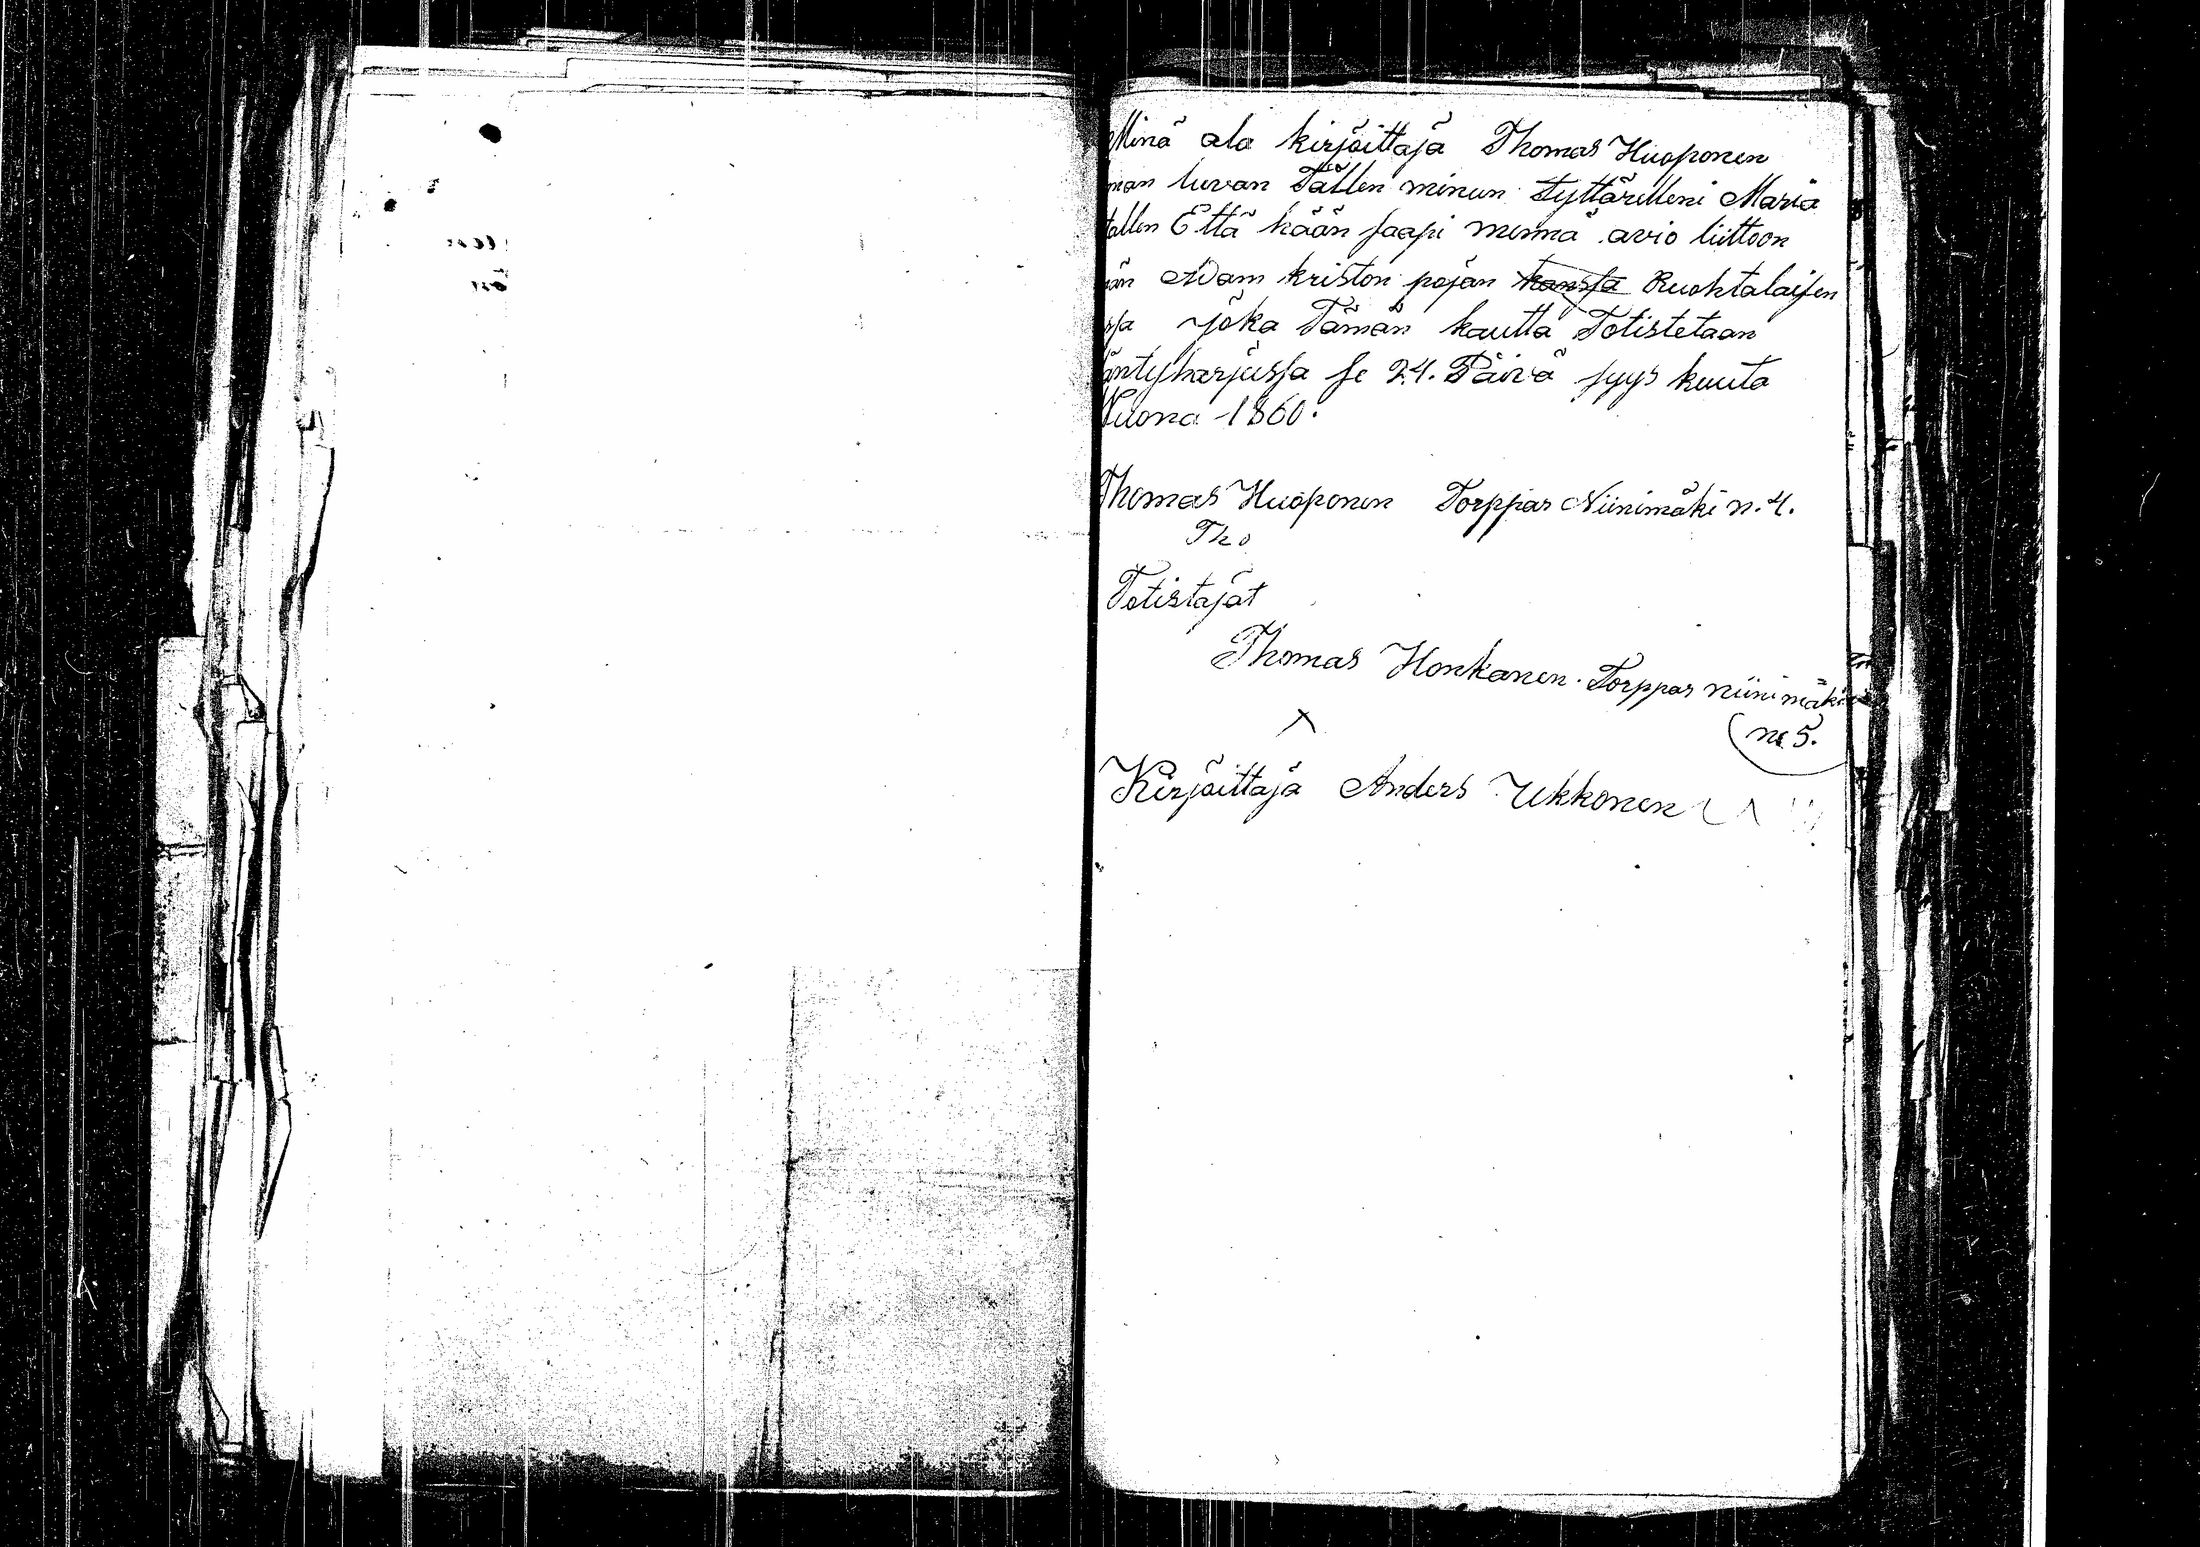 Minä ala kirjoittaja Thomas Huoponen
nan luvan Tällen minun Tyttärelleni Maria
tallen Että hään saapi mennä avio liittoon
än Adam kriston pojan kanssa Ruohtalaisen
ssa joka Tämän kautta Totistetaan
äntyharjussa se 24. Päivä syys kuuta
Wuona 1860.
Thomas Huoponen Torppar Niinimäki n. 4.
Tho
Totistajat
Thomas Honkanen. Torppar niinimäki
no 5.
Kirjoittaja Anders Ukkonen